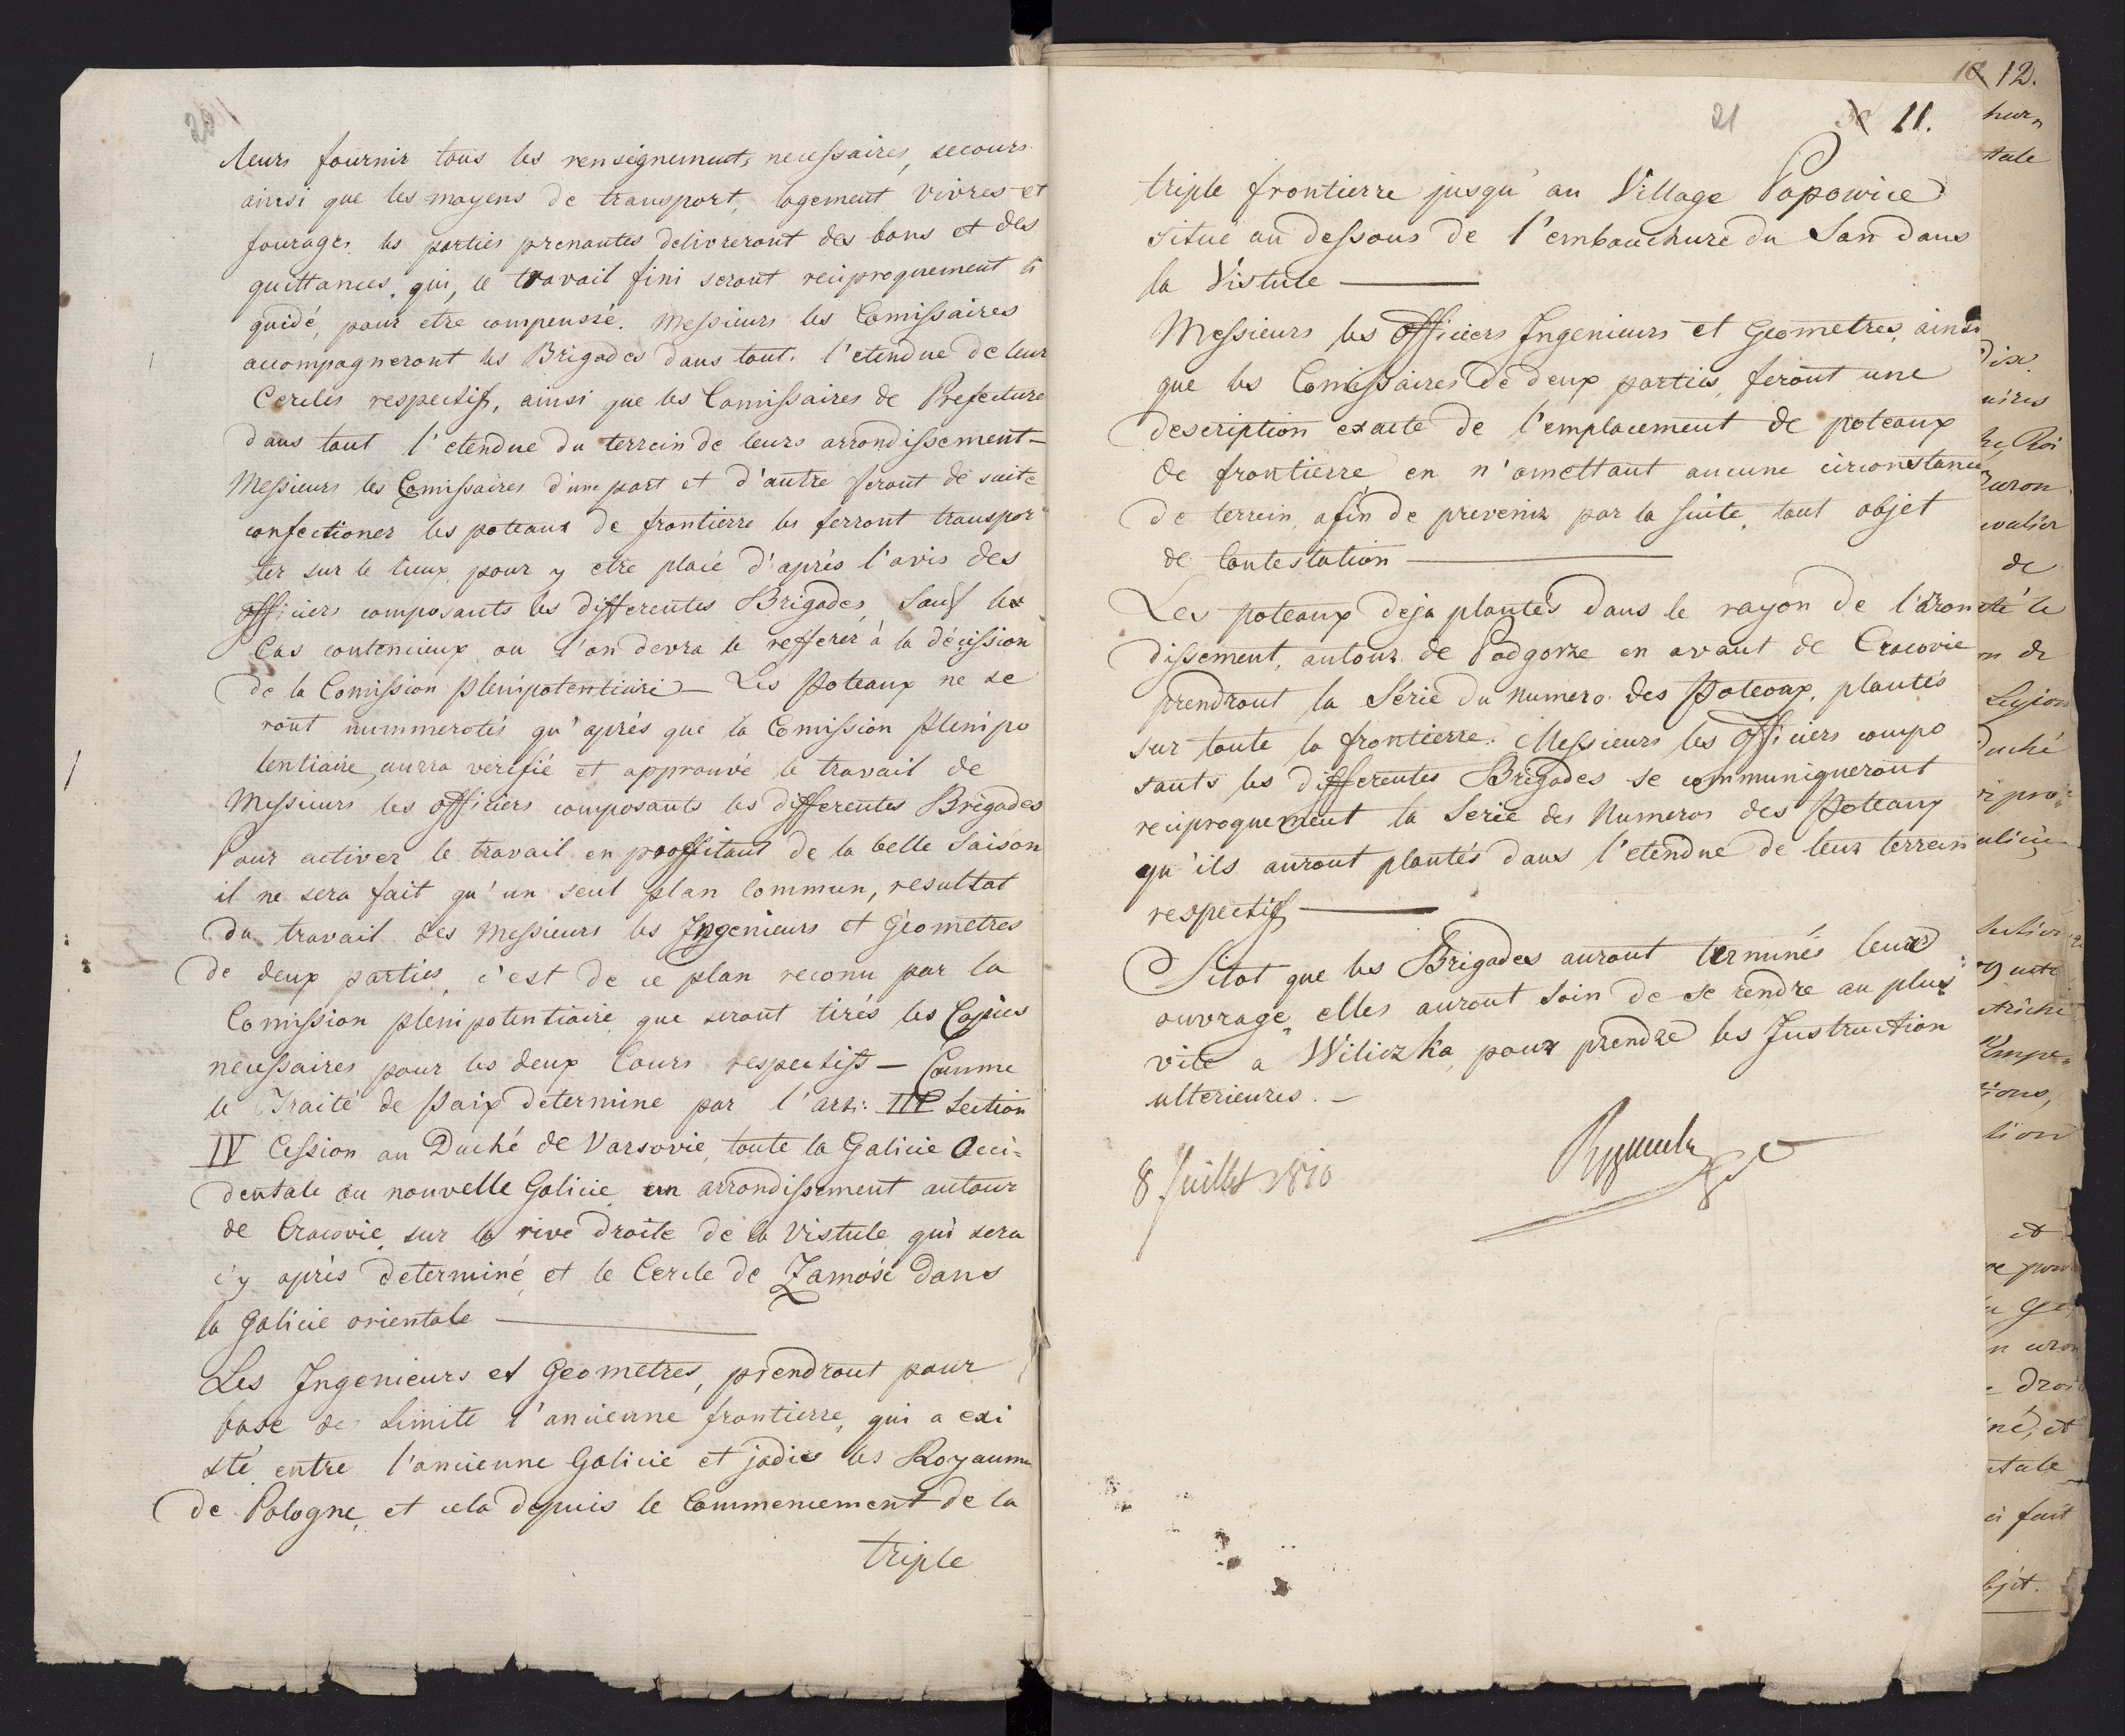 20
leurs fournir tous les renseignements necessaires, secours
ainsi que les moyens de transport, logement vivres et
fourages les parties prenantes delivreront des bons et des
quittances, qui, le travail fini seront reciproquement li
quidé, pour etre compensé. Messieurs les Comissaires
accompagneront les Brigades dans tout l'etendue de leur
Cercles respectifs, ainsi que les Comissaires de Prefecture
dans tout l'etendue du terrein de leurs arrondissement —
Messieurs les Comissaires d'une part et d'autre feront de suite
confectioner les poteaux de frontierre les ferront transpor
ter sur le lieux pour y etre placé d'aprés l'avis des
officiers composants les differentes Brigades, Sauf les
Cas contencieux ou l'on devra le refferer à la décission
de la Comission plenipotentiaire — Les Poteaux ne se
ront nummerotés qu'aprés que la Comission plenipo
tentiaire aurra verifié et approuvé le travail de
Messieurs les officiers composants les differentes Brigades
Pour activer le travail en proffitant de la belle Saison
il ne sera fait qu'un seul plan Commun, resultat
du travail des Messieurs les Ingenieurs et Géometres
de deux parties, c'est de ce plan reconu par la
Comission plenipotentiaire que seront tirés les Copies
necessaires pour les deux Cours respectifs — Comme
le Traité de Paix determine par l'art: III Section
IV Cession au Duché de Varsovie, toute la Galicie Occi-
dentale ou nouvelle Galicie un arrondissement autour
de Cracovie sur la rive droite de la Vistule qui sera
c'y aprés determiné, et le Cercle de Zamość dans
la Galicie orientale —
Les Ingenieurs et Geometres, prendront pour
base de Limite l'ancienne frontierre, qui a exi
sté entre l'ancienne Galicie et jadis les Royaume
de Pologne, et cela depuis le Commencement de la
triple
21 11.
triple frontierre jusqu'au Village Popowice
situé au dessous de l'embouchure du San dans
la Vistule —
Messieurs les Officiers Ingenieurs et Geometres, ainsi
que les Comissaires de deux parties, feront une
description exacte de l'emplacement de poteaux
de frontierre, en n'omettant aucune circonstance
de terrein, afin de prevenir par la suite, tout objet
de Contestation —
Les poteaux deja plantés dans le rayon de l'aron
dissement, autour de Podgorze en avant de Cracovie
prendront la Série du numero des Poteaux, plantés
sur toute la frontierre. Messieurs les Officiers compo
sants les differentes Brigades se communiqueront
reciproquement la Serie des Numeros des Poteaux
qu'ils auront plantés dans l'etendue de leur terrein
respectif —
Sitot que les Brigades auront terminés leurs
ouvrage, elles auront soin de se rendre au plus
vite a Wiliczka, pour prendre les Instruction
ulterieures. —
8 Juillet 1810
12.
tale
de